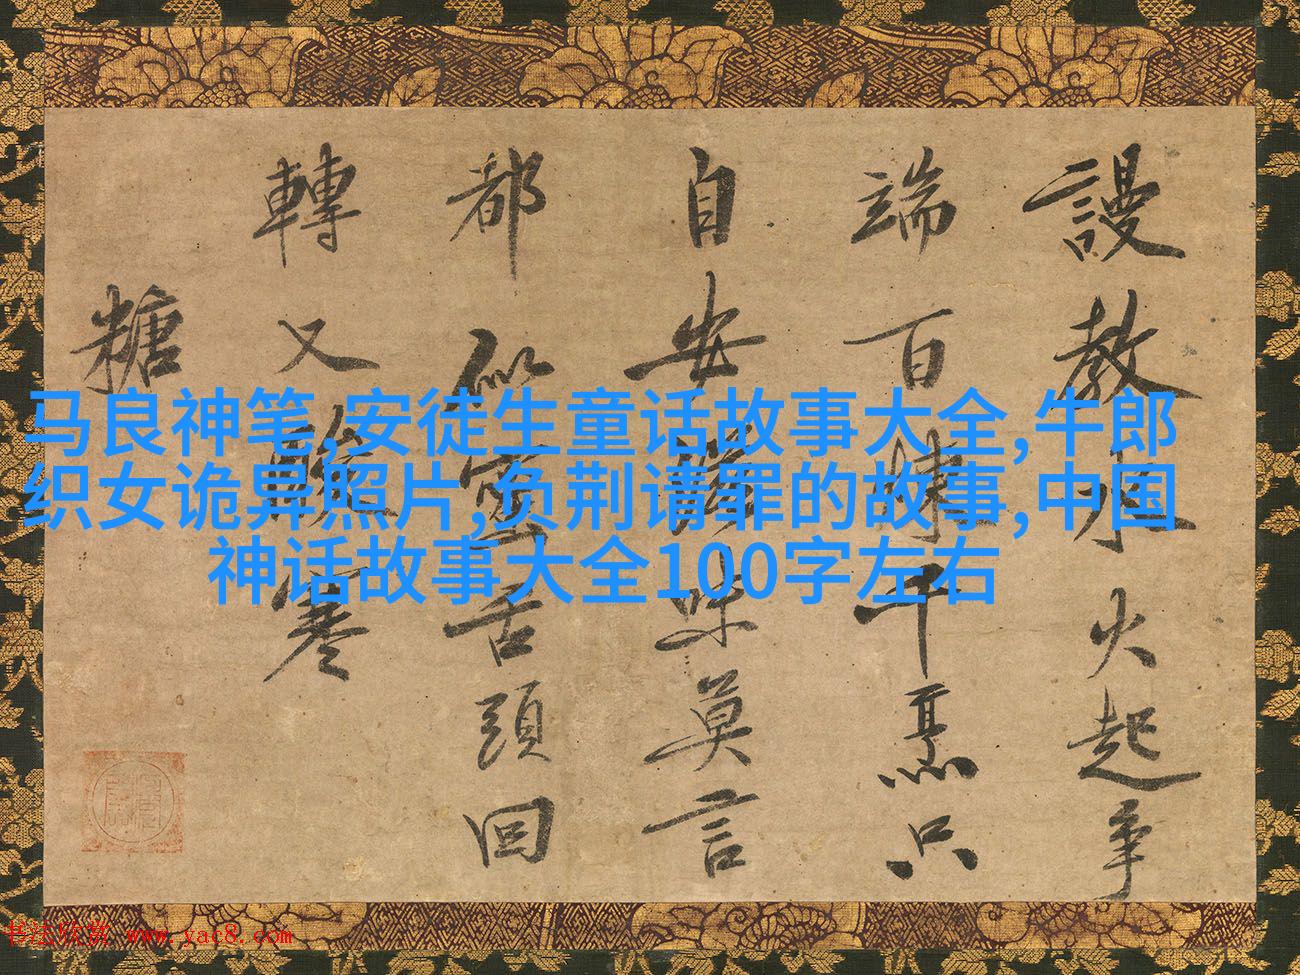 謾教水火起爭
端百煉千只
自安滋味莫言
都似蜜舌頭回
轉又酸寒
糖
马良神笔,安徒生童话故事大全,牛郎
织女诡异照片,负荆请罪的故事,中国
神话故事大全100字左右
书法欣赏 www.yac8.com